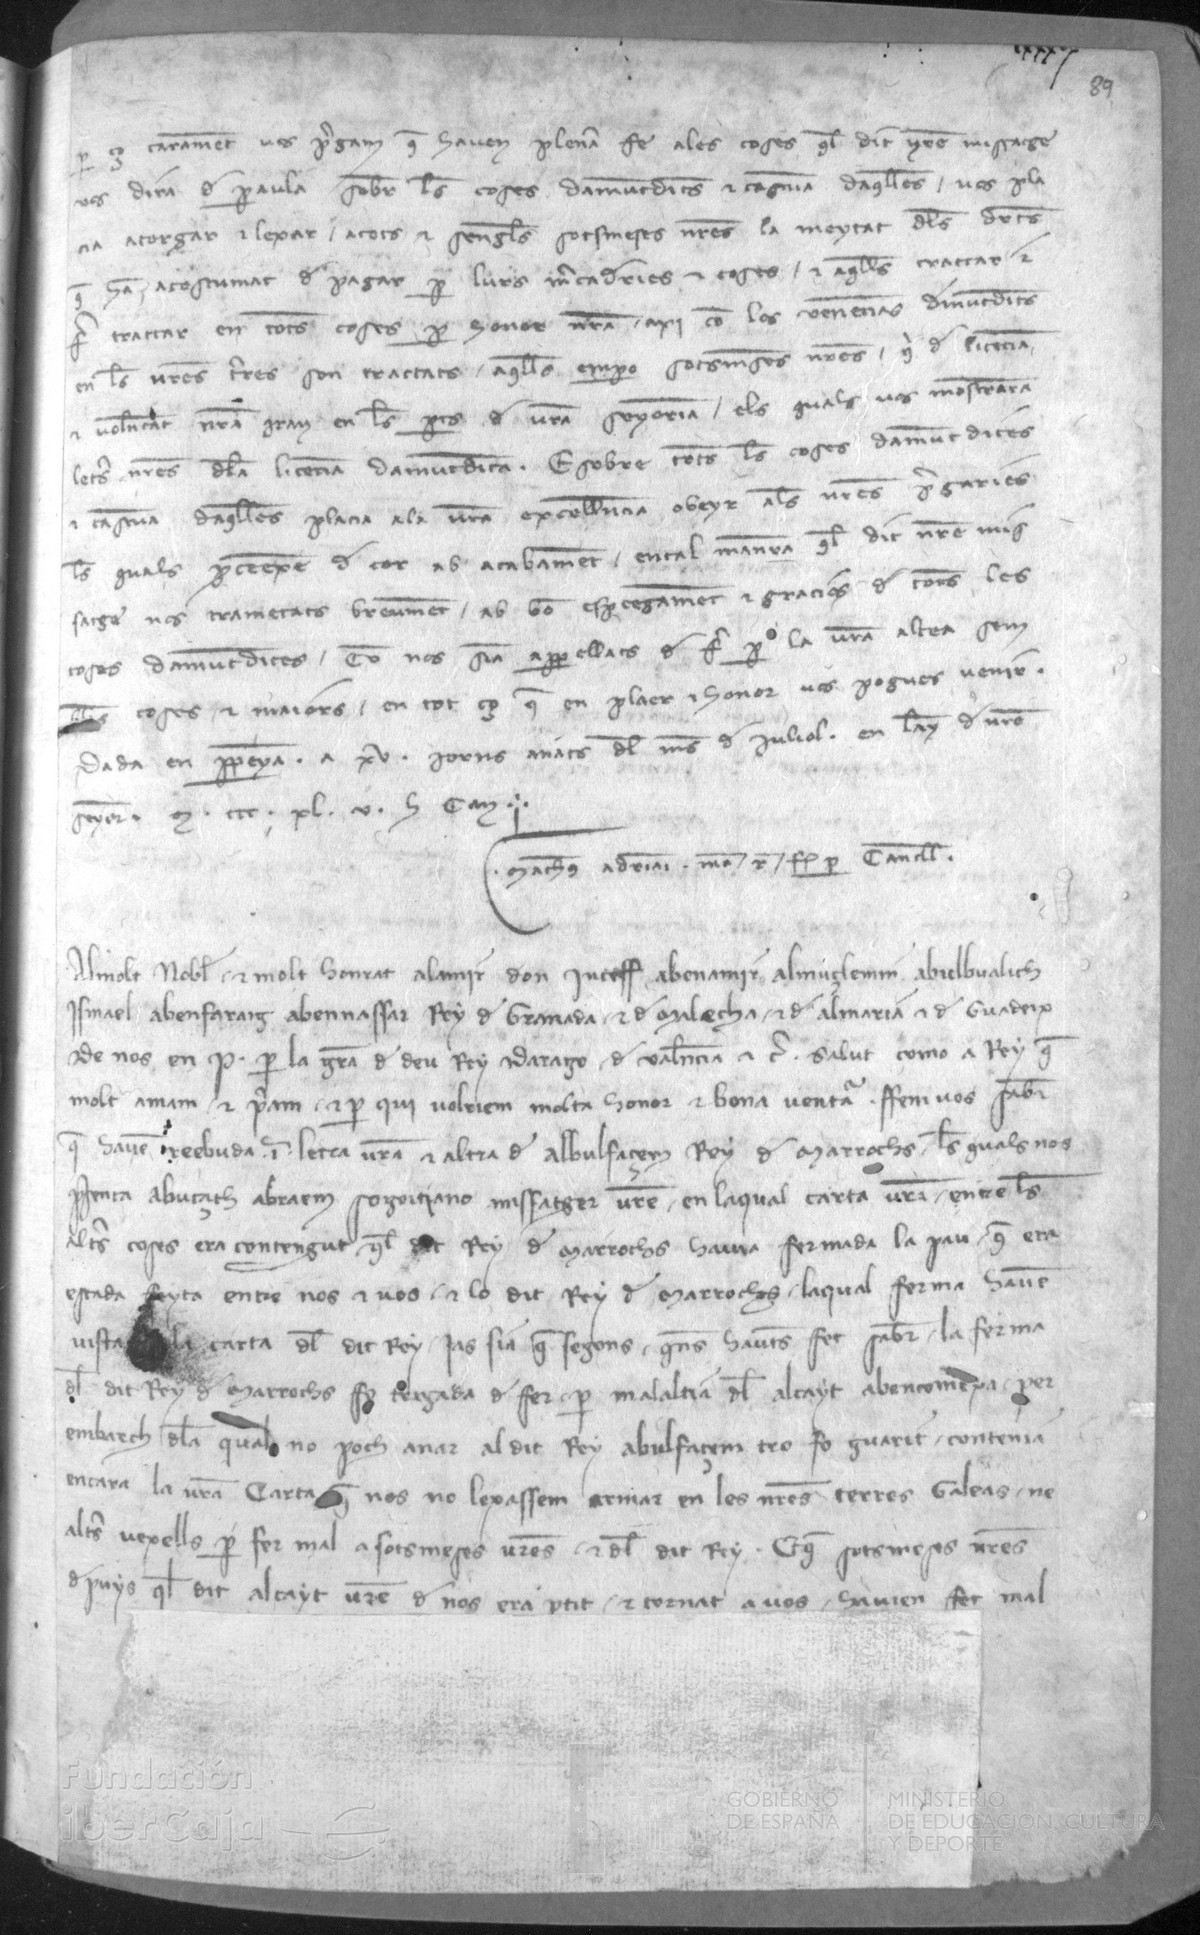 lxxxix
89
p ço carament vos pregam q̄ havem plenera fe a les coses q̄l dit vr̄e missatge
vos dira de paula sobre les coses damuntdits e cascuna daq̄lles / vos pla
cia atorgar e lexar / a tots e sengles sotsmeses nr̄es la meytat dels drets
q̄ han acostumat de pagar per lurs mercaderies e coses / e aq̄lls tractar e
fer tractar en totes coses per honor nr̄a axi com los venecians damuntdits
en les vr̄es terres son tractats / aq̄lls empero sotsmeses nr̄es / qui de licencia
e voluntat nr̄a iran en les parts de vr̄a senyoria / els quals vos mostraran
letres nr̄es de la licencia damuntdita . E sobre totes les coses damuntdites
e cascuna daq̄lles placia a la vr̄a excellencia obeyr a les nr̄es pregaries
les quals de cor ab acabament / en tal manera q̄l dit nr̄e mis
satge nos trametats breument / ab bo espeegament e gracies de totes les
coses damuntdites / Com nos siam appellats de fer per la vr̄a altea sem
blants coses e maiors / en tot ço q̄ en plaer e honor vos pogues venir .
Dada en ppenya . a xv . jorns anats del mes de juliol . en lany de nr̄e
senyor . M . ccc . xl . v . h Can .
Matheus adriani . man r / fo p Cancell .
Al molt Noble / e molt honrat alamir don juceff abenamir almuçlemin abielhualich
Ismael abenfaraig abennassar Rey de Granada / e de Malecha / e de almaria e de Guadeix
De nos en P . per la gr̄a de deu Rey Darago / de valencia e c̄ . Salut como a Rey q̄
molt amam / e pr̄am / e per qui volriem molta honor e bona ventura . ffem vos saber
q̄ havem reebuda i letra vr̄a e altra de albulfaçem Rey de Marrochs / les quals nos
pr̄senta abuçach abraem missatger vr̄e / en la qual carta vr̄a / entre les
altres coses era contengut / q̄l dit Rey de Marrochs havia fermada la pau / q̄ era
estada feyta entre nos e vos / e lo dit Rey de Marrochs / la qual ferma havem
vista la carta del dit Rey / jas sia q̄ segons / q̄ns havets fet saber / la ferma
del dit Rey de Marrochs fo trigada de fer / per malaltia del alcayt abencomexa / per
embarch de la qual no poch anar al dit Rey abulfaçem tro fo guarit / contenia
encara la vr̄a Carta q̄ nos no lexassem armar en les nr̄es terres Galeas / ne
altres vexells per fer mal a sotsmeses vr̄es / e del dit Rey . E q̄ sotsmeses nr̄es
depuys q̄l dit alcayt vr̄e de nos era ptit / e tornat a vos / havien fet mal
Fundación
iberCaja
GOBIERNO
DE ESPAÑA
MINISTERIO
DE EDUCACIÓN, CULTURA
Y DEPORTE